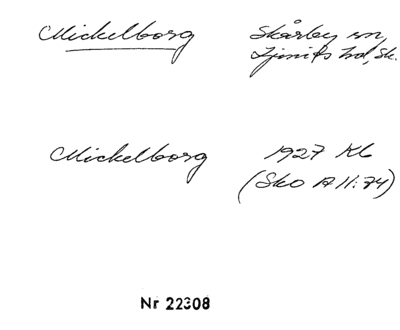 Mickelborg Skårby sn,
Ljunits hd, Sk.
Mickelborg 1927 Kb
(Sko A II:74)
Nr 22308